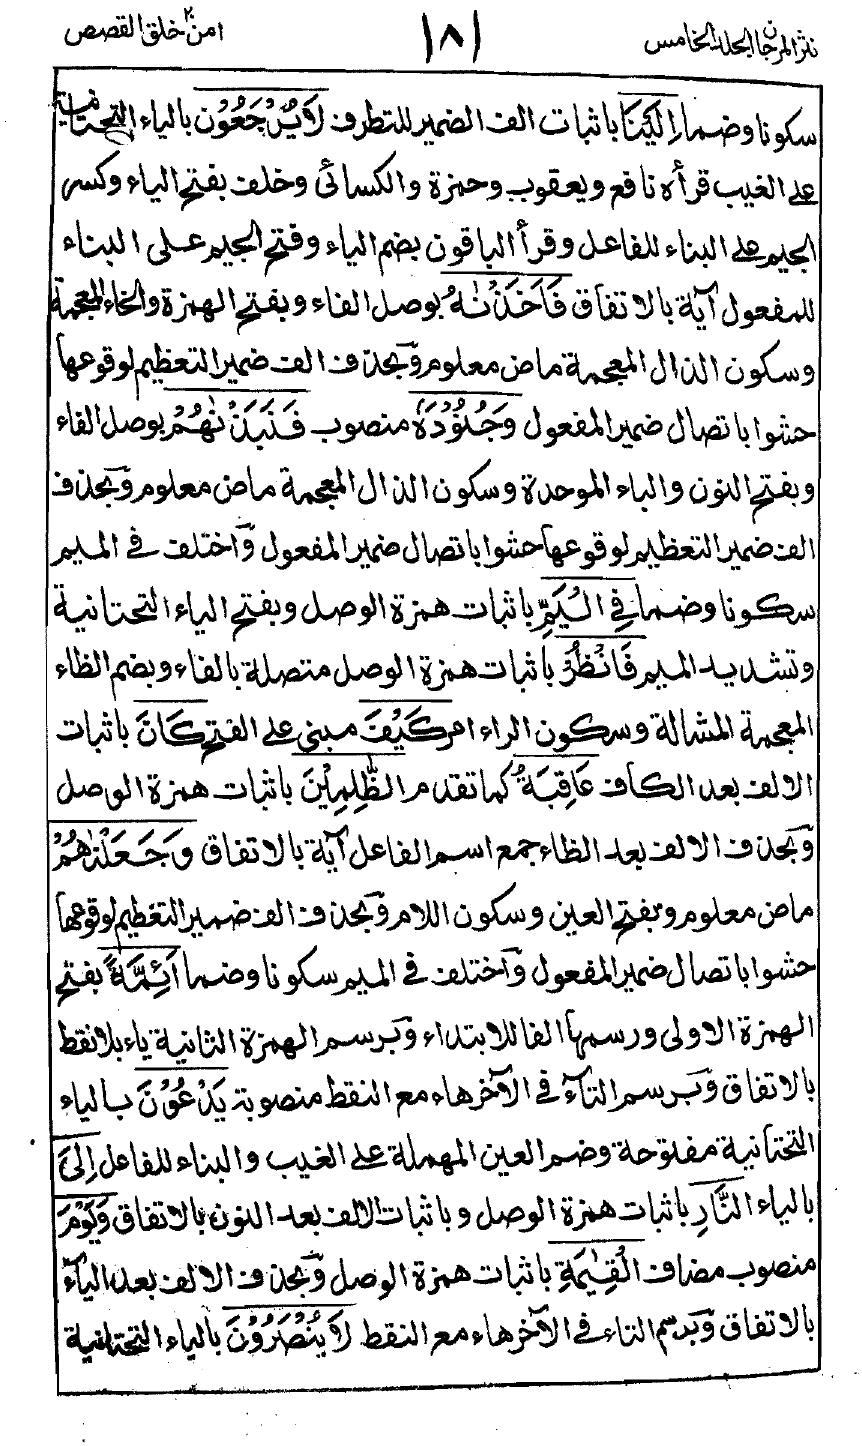 نثر المرجان الجلد الخامس
١٨١
امن خلق ٢٠ القصص
سكونا وضما اِلَيْنَا باثبات الف الضمير للتطرف لَا يُرْجَعُوْنَ بالياء التحتانية
على الغيب قرأه نافع ويعقوب وحمزة والكسائى وخلف بفتح الياء وكسر
الجيم على البناء للفاعل وقرأ الباقون بضم الياء وفتح الجيم على البناء
للمفعول آية بالاتفاق فَاَخَذْنٰهُ بوصل الفاء وبفتح الهمزة والخاء المعجمة
وسكون الذال المعجمة ماض معلوم وَبحذف الف ضمير التعظيم لوقوعها
حشوا باتصال ضمير المفعول وَجُنُوْدَهٗ منصوب فَنَبَذْنٰهُمْ بوصل الفاء
وبفتح النون والباء الموحدة وسكون الذال المعجمة ماض معلوم وَبحذف
الف ضمير التعظيم لوقوعها حشوا باتصال ضمير المفعول وَاختلف في الميم
سكونا وضما فِي الْيَمِّ باثبات همزة الوصل وبفتح الياء التحتانية
وتشديد الميم فَانْظُرْ باثبات همزة الوصل متصلة بالفاء وبضم الظاء
المعجمة المشالة وسكون الراء امر كَيْفَ مبني على الفتح كَانَ باثبات
الالف بعد الكاف عَاقِبَةُ كما تقدم الظّٰلِمِيْنَ باثبات همزة الوصل
وَبحذف الالف بعد الظاء جمع اسم الفاعل آية بالاتفاق وَجَعَلْنٰهُمْ
ماض معلوم وبفتح العين وسكون اللام وَبحذف الف ضمير التعظيم لوقوعها
حشوا باتصال ضمير المفعول وَاختلف في الميم سكونا وضما اَئِمَّةً بفتح
الهمزة الاولى ورسمها الفا للابتداء وَبرسم الهمزة الثانية ياء بلا نقط
بالاتفاق وَبرسم التاء في الآخر هاء مع النقط منصوبة يَدْعُوْنَ بالياء
التحتانية مفتوحة وضم العين المهملة على الغيب والبناء للفاعل اِلَى
بالياء النَّارِ باثبات همزة الوصل وباثبات الالف بعد النون بالاتفاق وَيَوْمَ
منصوب مضاف الْقِيٰمَةِ باثبات همزة الوصل وَبحذف الالف بعد الياء
بالاتفاق وَبرسم التاء في الآخر هاء مع النقط لَا يُنْصَرُوْنَ بالياء التحتانية